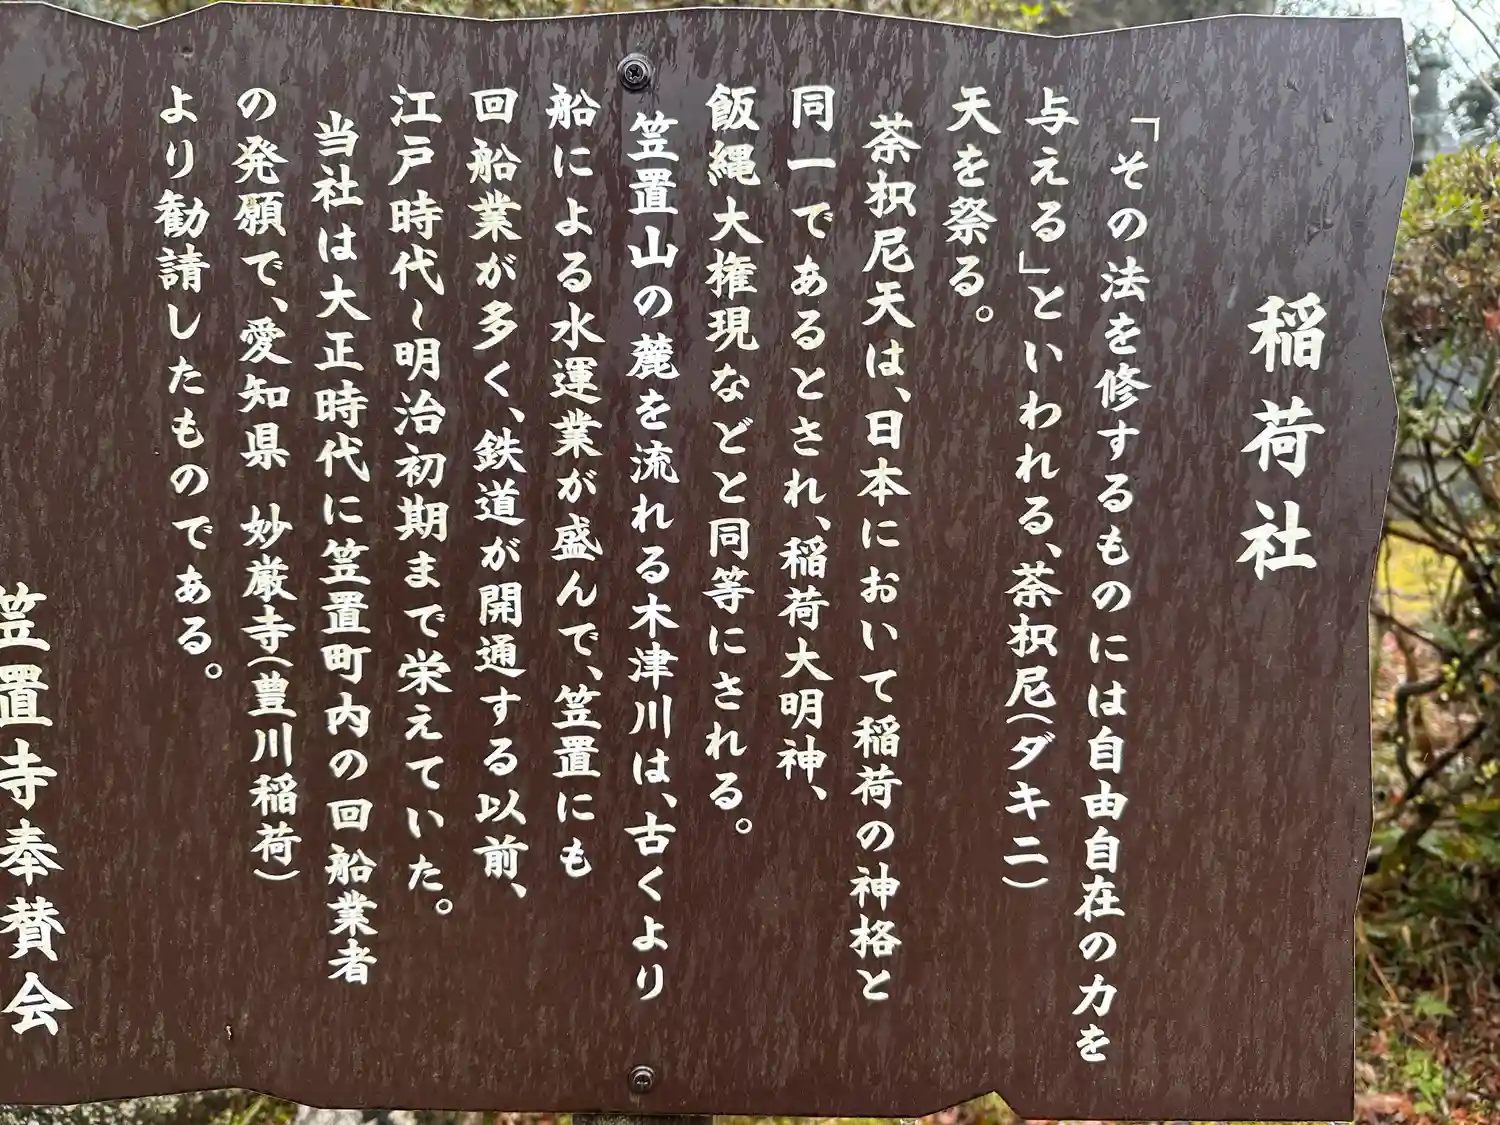 稲荷社
「その法を修するものには自由自在の力を
与える」といわれる、荼枳尼(ダキニ)
天を祭る。
荼枳尼天は、日本において稲荷の神格と
同一であるとされ、稲荷大明神、
飯縄大権現などと同等にされる。
笠置山の麓を流れる木津川は、古くより
船による水運業が盛んで、笠置にも
回船業が多く、鉄道が開通する以前、
江戸時代~明治初期まで栄えていた。
当社は大正時代に笠置町内の回船業者
の発願で、愛知県 妙厳寺(豊川稲荷)
より勧請したものである。
笠置寺奉賛会